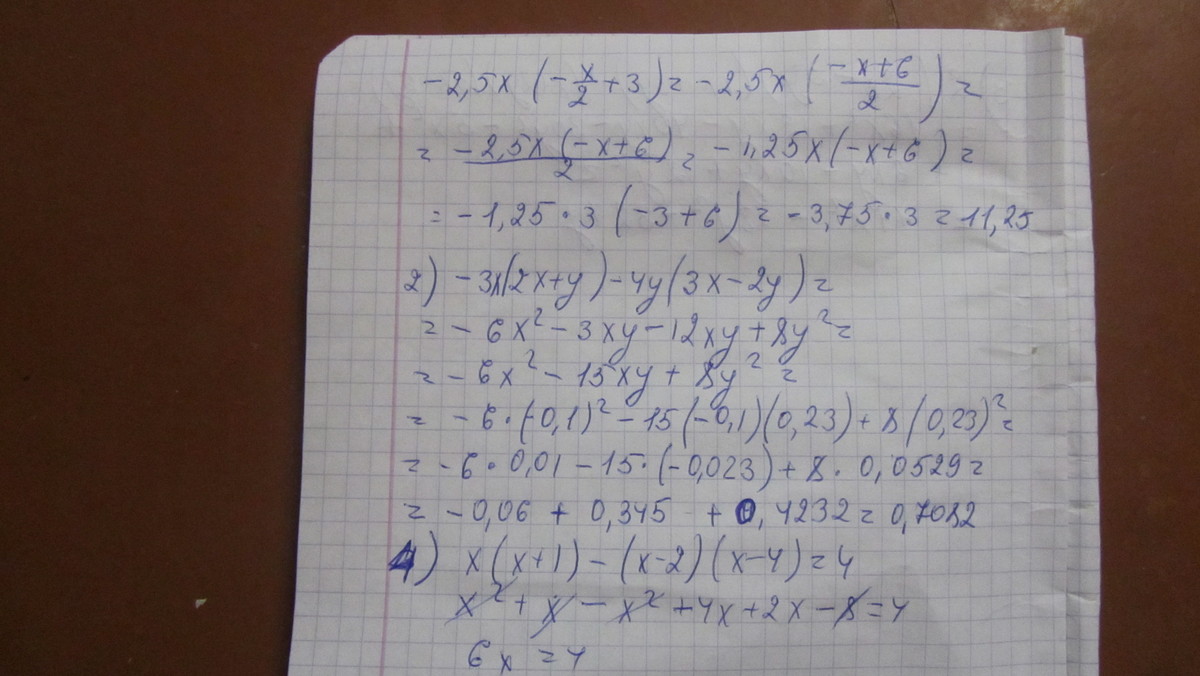 -2,5x (-x/2 + 3) = -2,5x (-x+6/2) =
= -2,5x (-x+6)/2 = -1,25x(-x+6) =
= -1,25 · 3 (-3+6) = -3,75 · 3 = 11,25
2) -3x(2x+y) - 4y(3x-2y) =
= -6x² - 3xy - 12xy + 8y² =
= -6x² - 15xy + 8y² =
= -6·(-0,1)² - 15(-0,1)(0,23) + 8(0,23)² =
= -6 · 0,01 - 15·(-0,023) + 8 · 0,0529 =
= -0,06 + 0,345 + 0,4232 = 0,7082
4) x(x+1) - (x-2)(x-4) = 4
x² + x - x² + 4x + 2x - 8 = 4
6x = 4